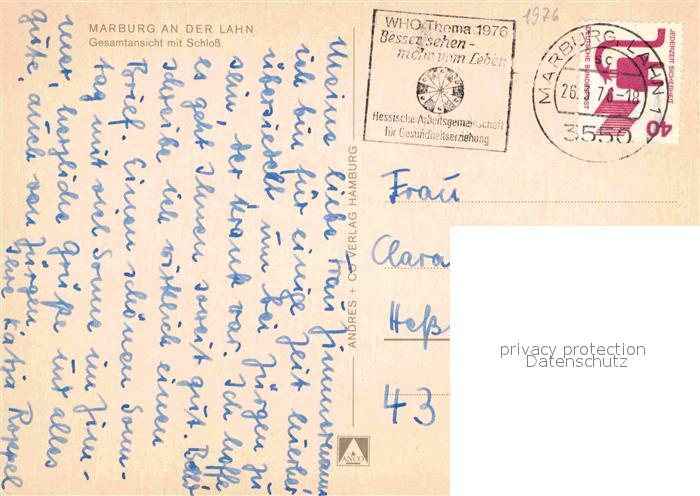 MARBURG AN DER LAHN
Gesamtansicht mit Schloß
Meine liebe Frau Zimmermann
ich bin für einige Zeit hierher
übersiedelt um bei Jürgen zu
sein, der krank war. Ich hoffe
es geht Ihnen soweit gut. Bald
schreibe ich wirklich einen
Brief. Einen schönen Sonn-
tag mit viel Sonne im Zim-
mer, herzliche Grüße und alles
gute, auch von Jürgen
Ihre Katja
ANDRES + CO VERLAG HAMBURG
ANCO
WHO-Thema 1976
Besser sehen -
mehr vom Leben
Hessische Arbeitsgemeinschaft
für Gesundheitserziehung
1976
MARBURG, LAHN 1
sc
26.
76-18
3550
JEDERZEIT SICHERHEIT
DEUTSCHE BUNDESPOST
40
Frau
Clara
Heß
43
privacy protection
Datenschutz